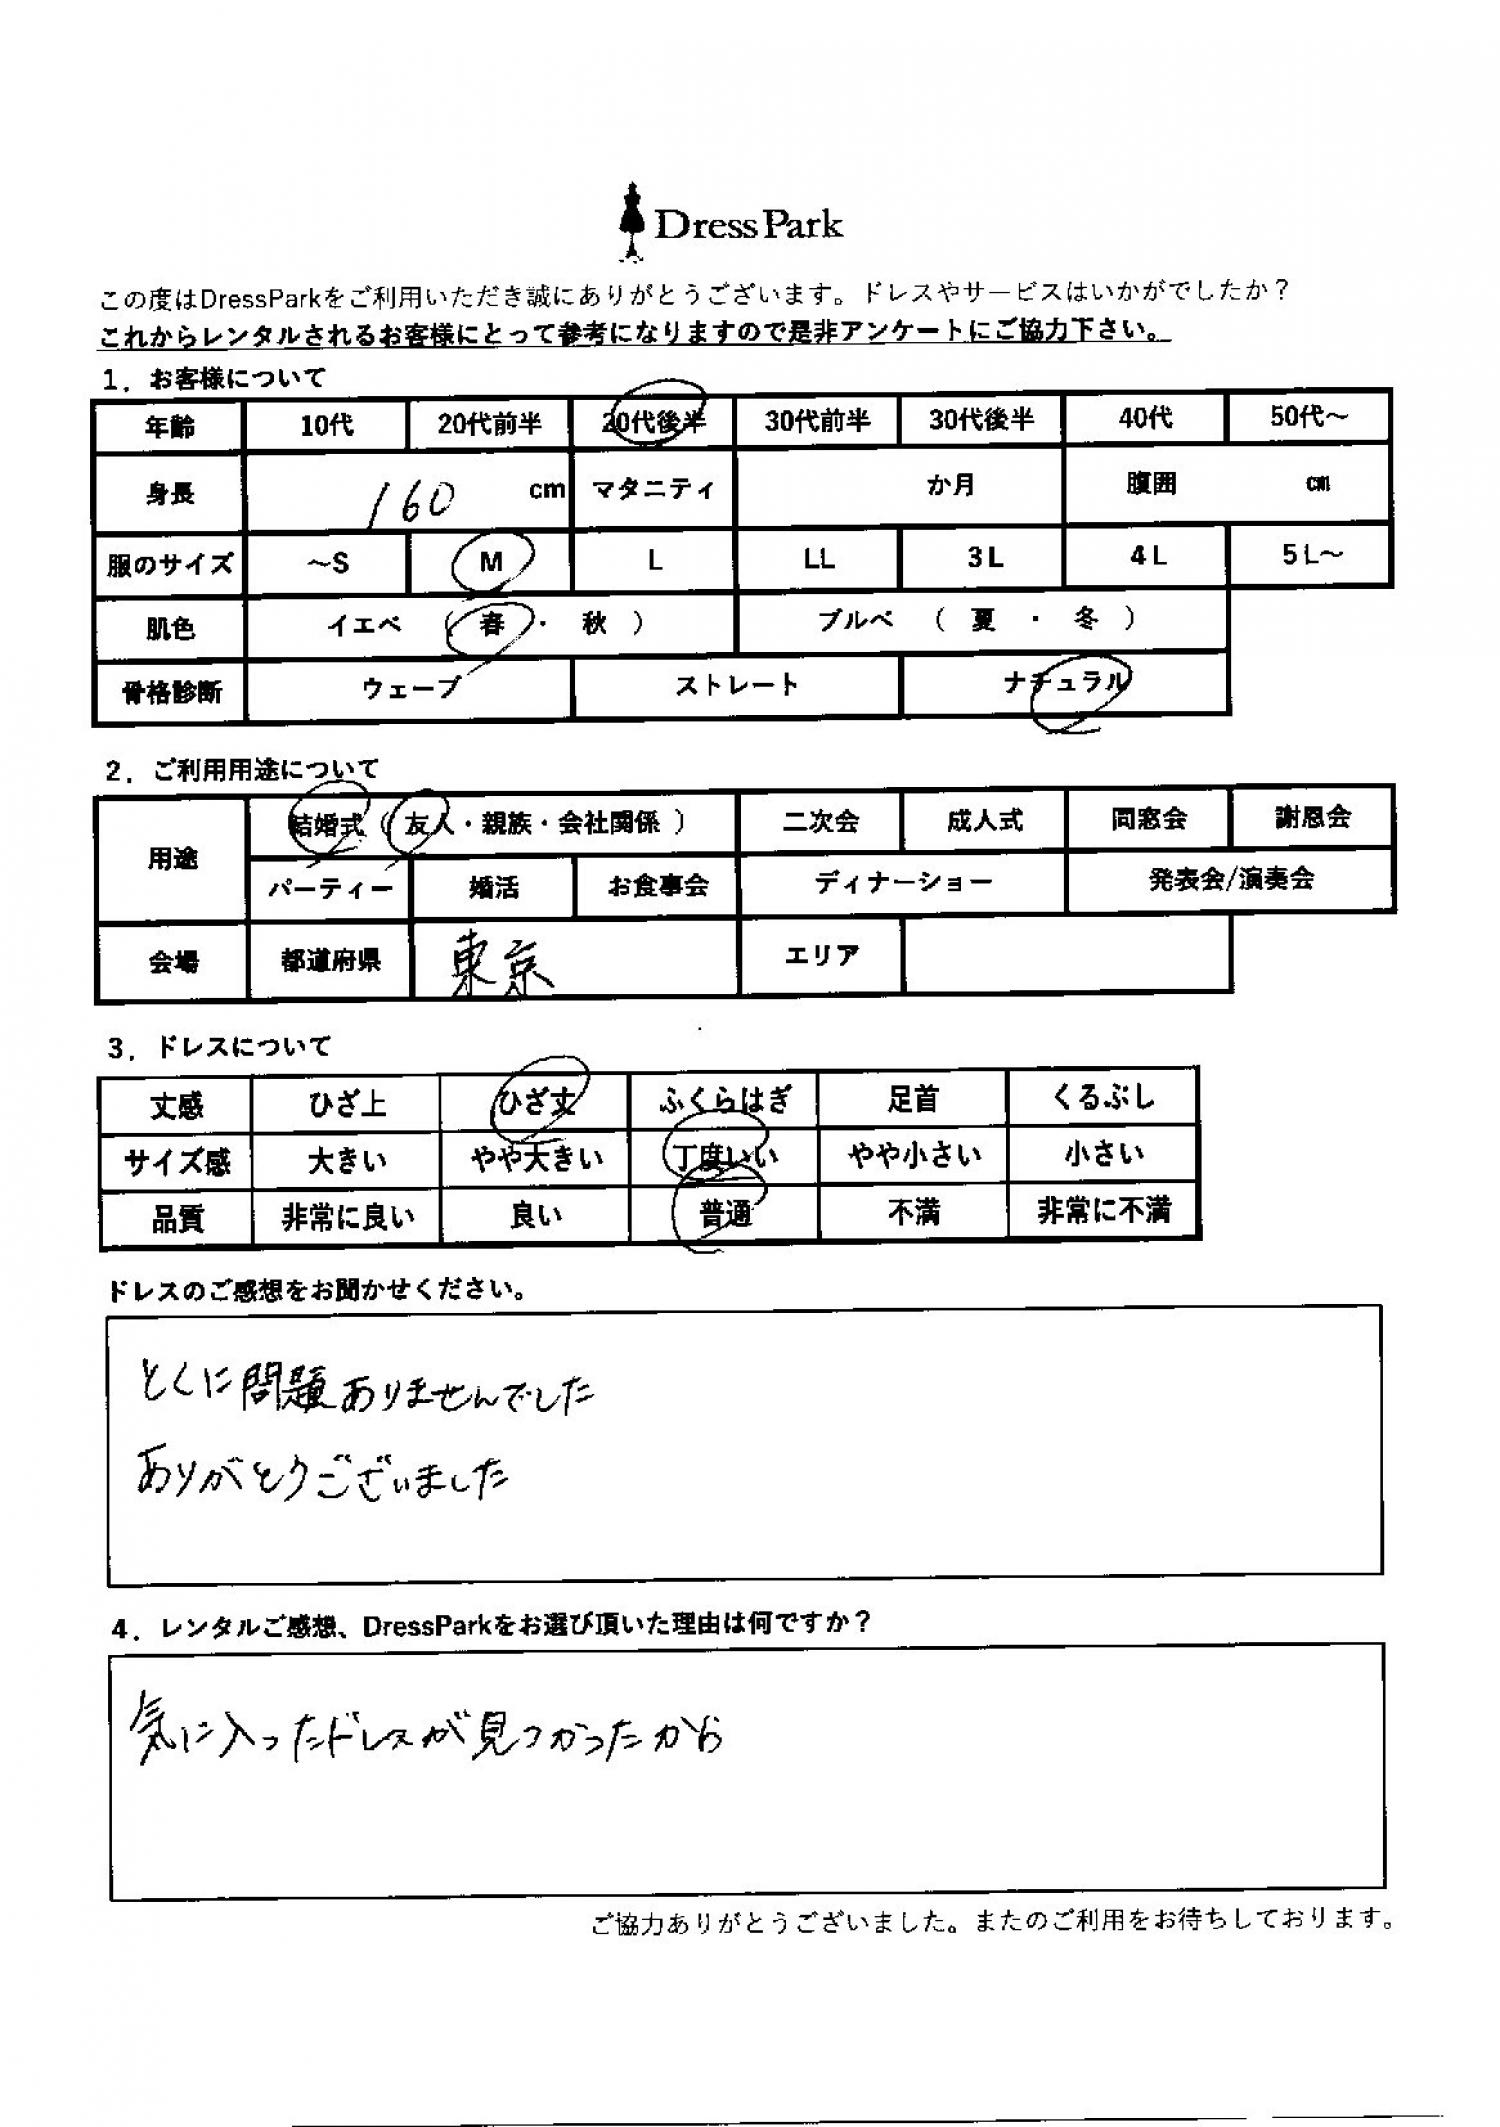 DressPark
この度はDressParkをご利用いただき誠にありがとうございます。ドレスやサービスはいかがでしたか？
これからレンタルされるお客様にとって参考になりますので是非アンケートにご協力下さい。
1．お客様について
年齢 10代 20代前半 20代後半 30代前半 30代後半 40代 50代～
身長 160 cm マタニティ か月 腹囲 cm
服のサイズ ～S M L LL 3L 4L 5L～
肌色 イエベ （ 春 ・ 秋 ） ブルベ （ 夏 ・ 冬 ）
骨格診断 ウェーブ ストレート ナチュラル
2．ご利用用途について
用途 結婚式（ 友人・親族・会社関係 ） 二次会 成人式 同窓会 謝恩会
パーティー 婚活 お食事会 ディナーショー 発表会/演奏会
会場 都道府県 東京 エリア
3．ドレスについて
丈感 ひざ上 ひざ丈 ふくらはぎ 足首 くるぶし
サイズ感 大きい やや大きい 丁度いい やや小さい 小さい
品質 非常に良い 良い 普通 不満 非常に不満
ドレスのご感想をお聞かせください。
とくに問題ありませんでした
ありがとうございました
4．レンタルご感想、DressParkをお選び頂いた理由は何ですか？
気に入ったドレスが見つかったから
ご協力ありがとうございました。またのご利用をお待ちしております。